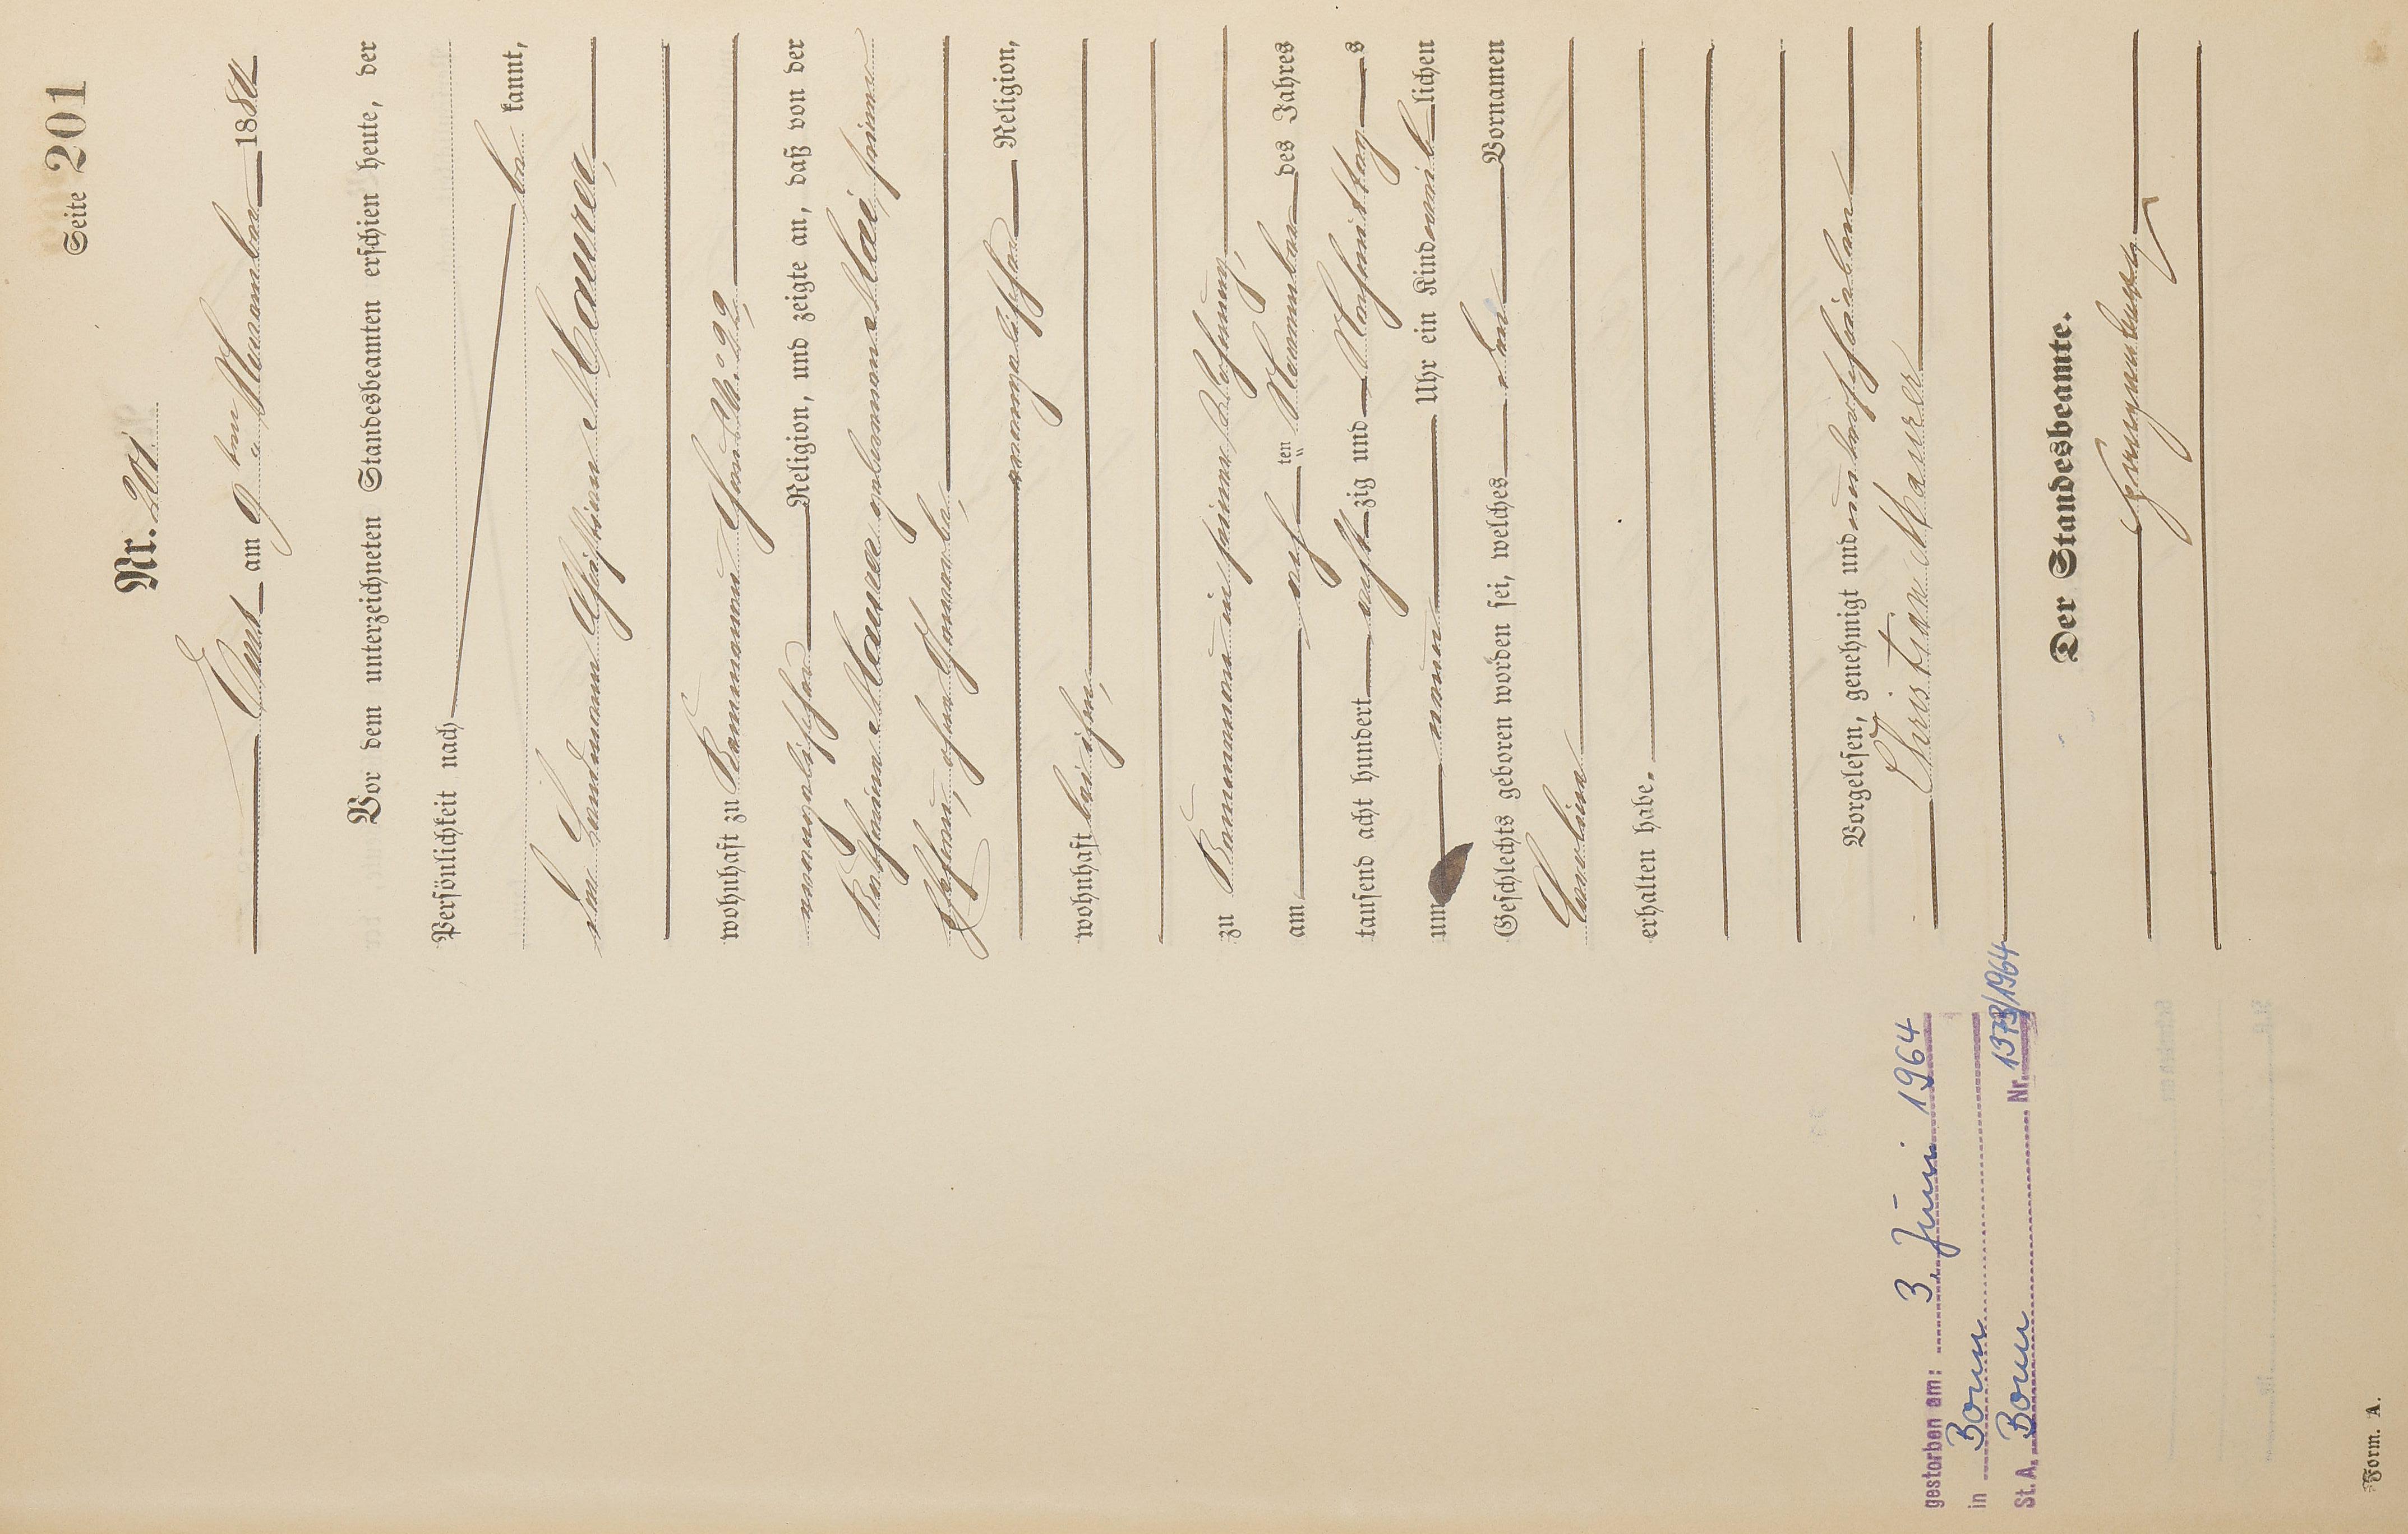 Seite 201
Nr. 201
Ems am 9ten November 188
Vor dem unterzeichneten Standesbeamten erschien heute, der
Persönlichkeit nach
be kannt,
der Landmann Christian Maurer,
wohnhaft zu Kemmenau
evangelischer Religion, und zeigte an, daß von der
Katharina Maurer geborenen Mai seiner
Ehefrau, ohne Gewerbe,
evangelischer Religion,
wohnhaft bei ihm,
zu Kemmenau in seiner Wohnung,
am acht ten November des Jahres
tausend acht hundert acht zig und Nachmittag s
um neun Uhr ein Kind weib lichen
Geschlechts geboren worden sei, welches den Vornamen
Caroline
erhalten habe.
Vorgelesen, genehmigt und unterschrieben
Christian Maurer
Der Standesbeamte.
gestorben am: 3. Juni 1964
in Bonn
St. A. Bonn Nr. 1373/1964
Form. A.